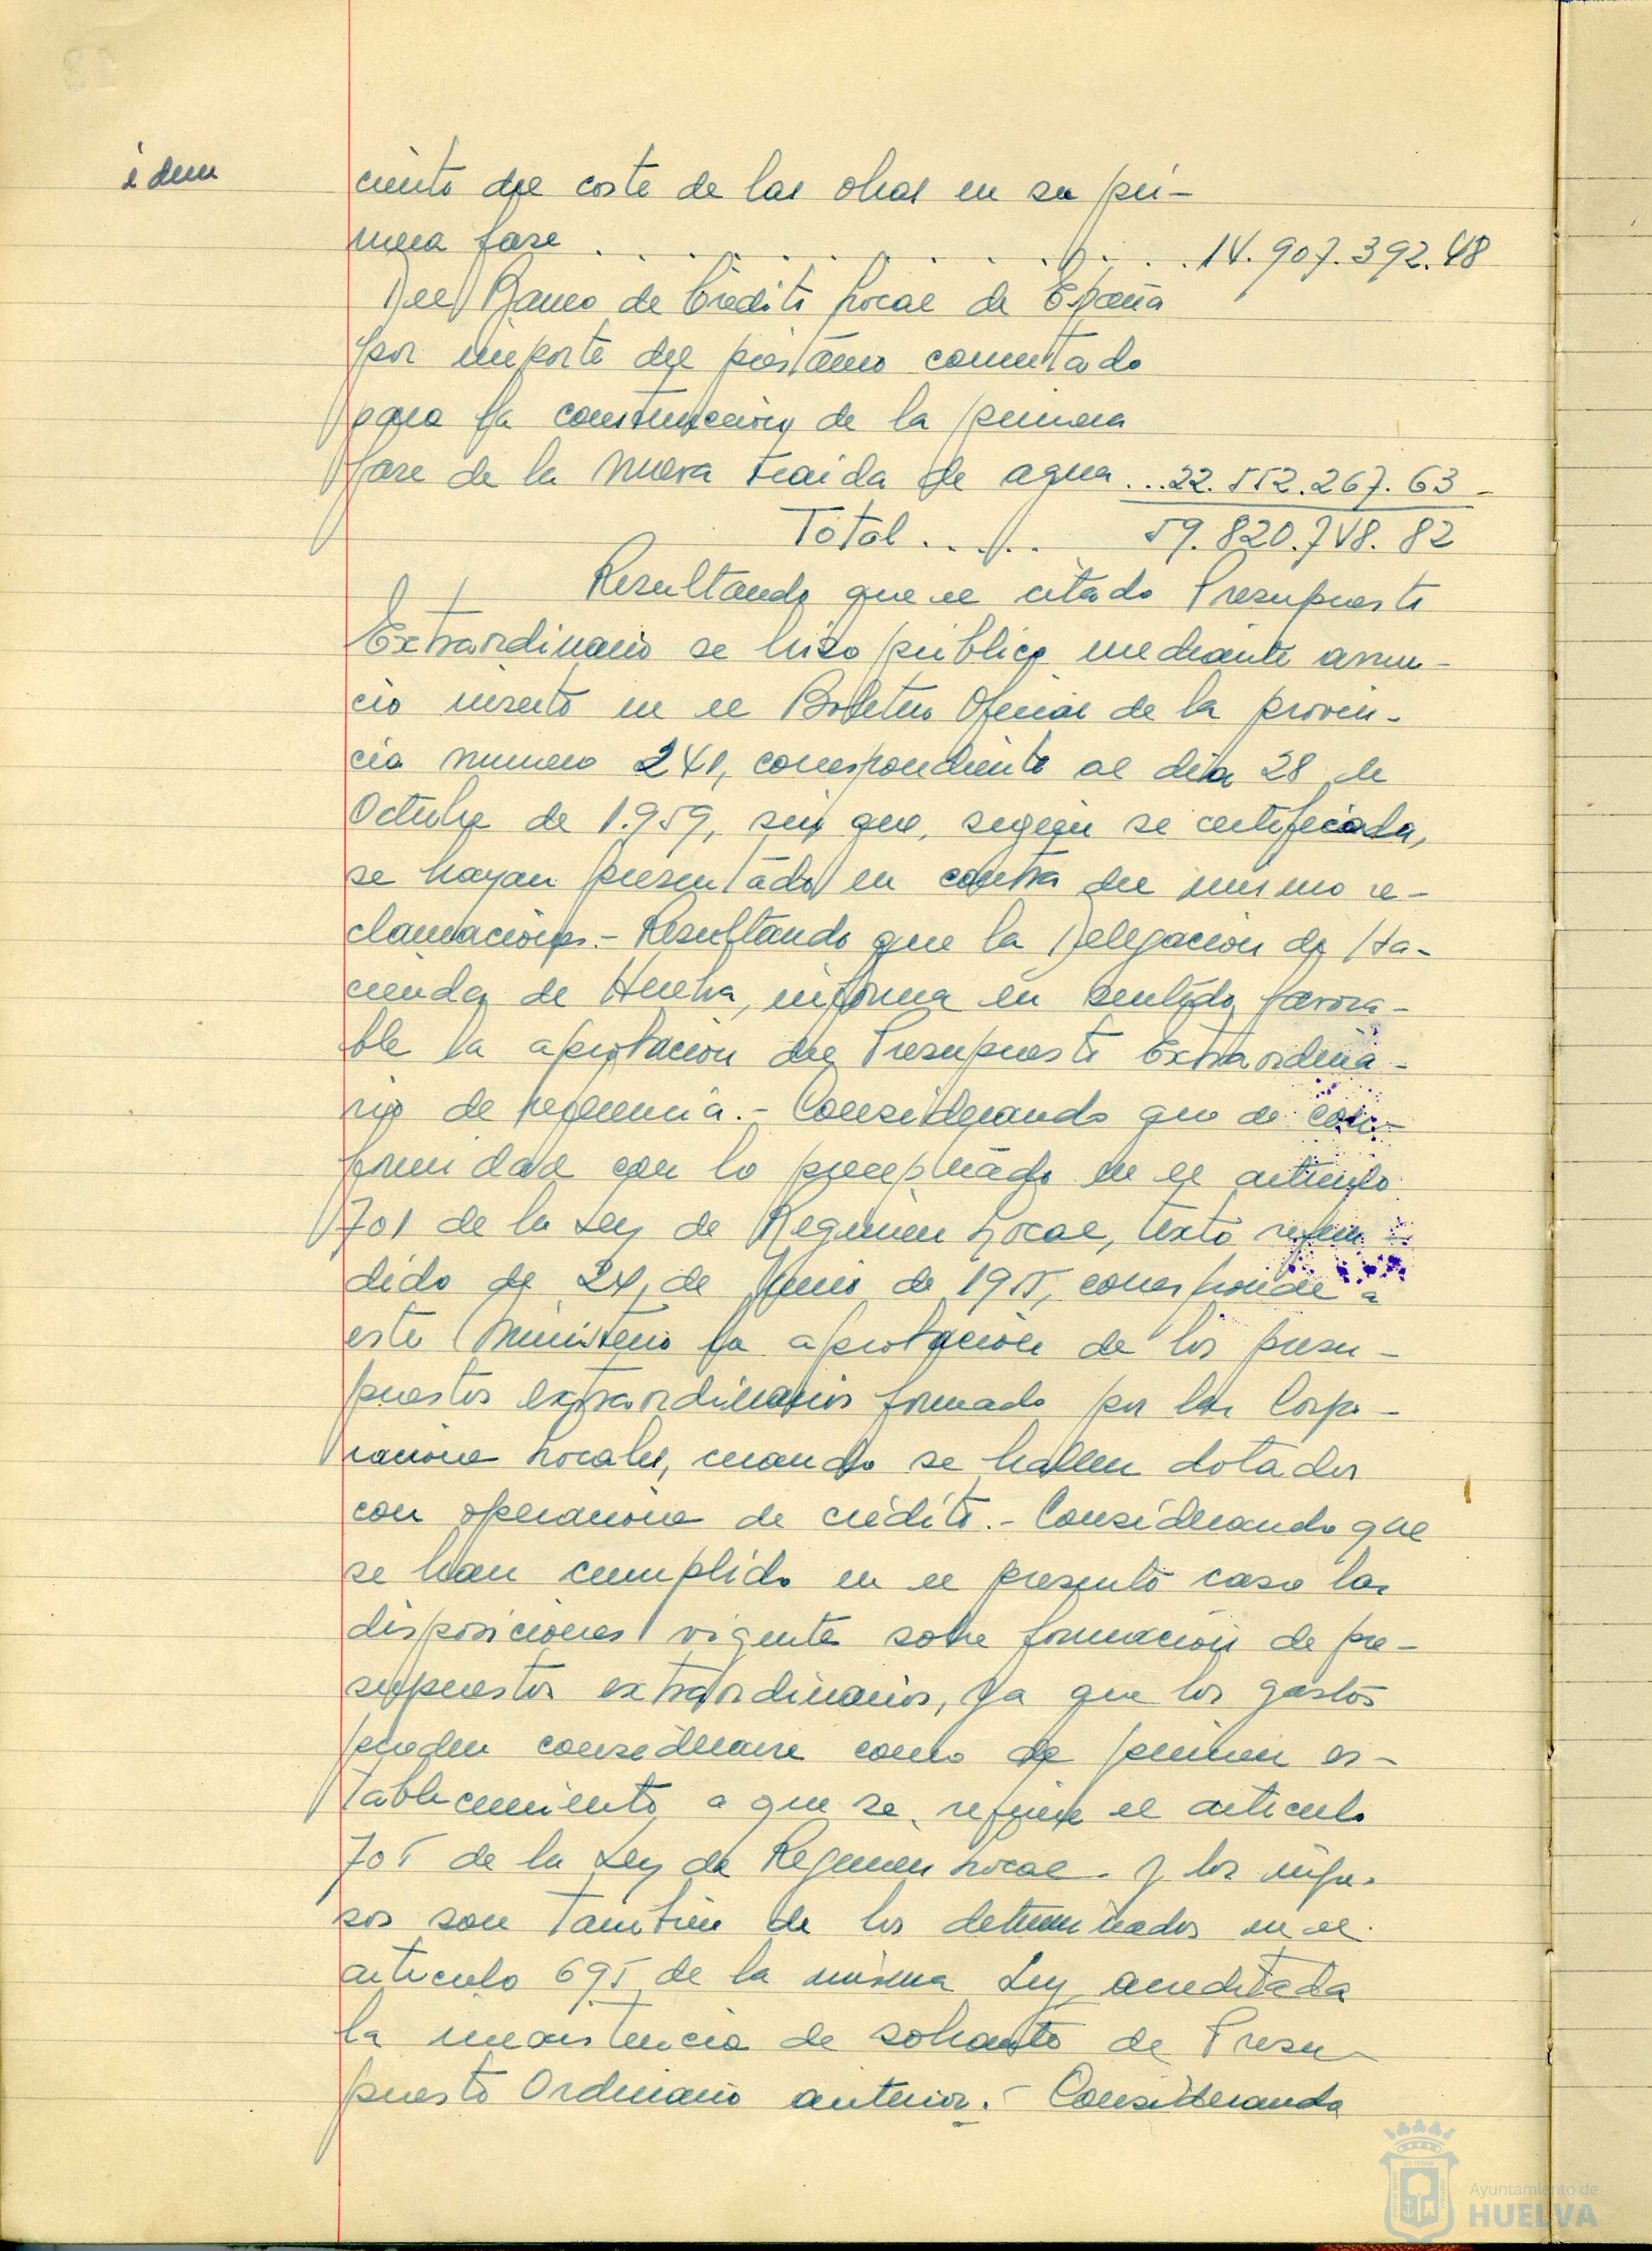 idem
ciento del coste de las obras en su pri-
mera fase . . . . . . . . . . . . 14.907.392.48
Del Banco de Crédito Local de España
por importe del préstamo concertado
para la construcción de la primera
fase de la nueva traida de agua... 22.552.267.63-
Total ..... 59.820.748.82
Resultando que el citado Presupuesto
Extraordinario se hizo público mediante anun-
cio inserto en el Boletin Oficial de la provin-
cia numero 241, correspondiente al dia 28 de
Octubre de 1.959, sin que, según se certificada,
se hayan presentado en contra del mismo re-
clamaciones.- Resultando que la Delegacion de Ha-
cienda de Huelva, informa en sentido favora-
ble la aprobacion del Presupuesto Extraordina-
rio de referencia.- Considerando que de con-
formidad con lo preceptuado en el articulo
701 de la Ley de Regimen Local, texto refun-
dido de 24, de Junio de 1955, corresponde a
este Ministerio la aprobacion de los presu-
puestos extraordinarios formado por las Corpo-
raciones Locales, cuando se hallen dotados
con operaciones de crédito.- Considerando que
se han cumplido en el presente caso las
disposiciones vigentes sobre formacion de pre-
supuestos extraordinarios, ya que los gastos
pueden considerarse como de primer es-
tablecimiento a que se refiere el articulo
705 de la Ley de Regimen Local. y los ingre-
sos son tambien de los determinados en el
articulo 695 de la misma Ley, acreditada
la inexistencia de sobrante de Presu-
puesto Ordinario anterior.- Considerando
Ayuntamiento de
HUELVA